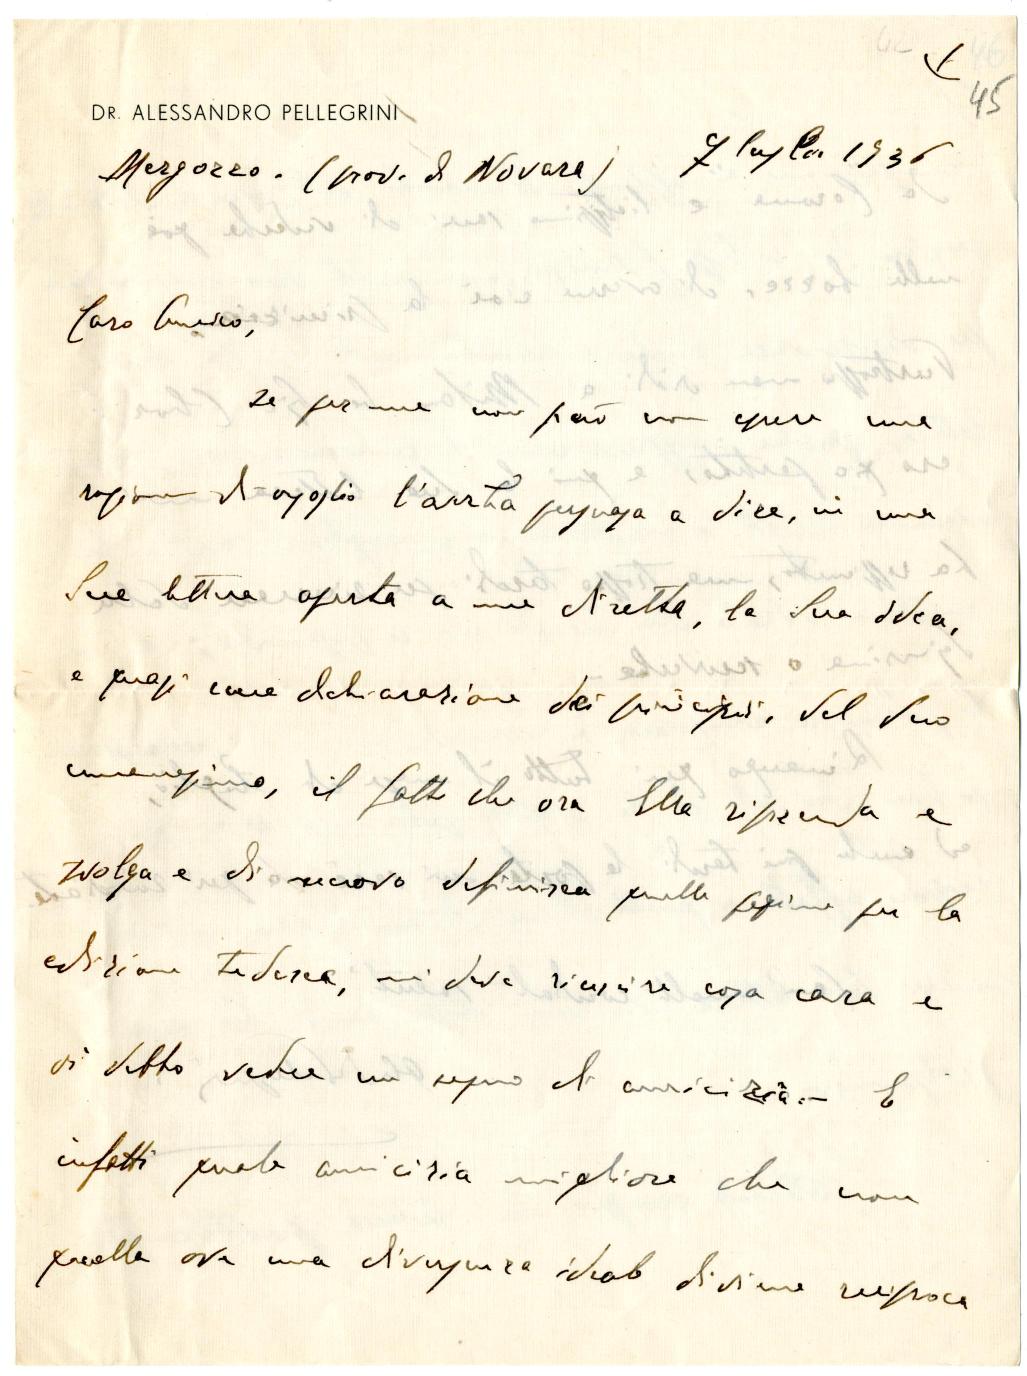 45
DR. ALESSANDRO PELLEGRINI
Mergozzo. (prov. di Novara) 7 luglio 1936
Caro Amico,
se per me non può non essere una
ragione di orgoglio l'averLa spinta a dire, in una
Sua lettera aperta a me diretta, la Sua idea,
e quasi una dichiarazione dei principii, del Suo
umanesimo, il fatto che ora Ella riprenda e
svolga e di nuovo definisca quelle pagine per la
edizione tedesca, mi deve riuscire cosa cara e
vi debbo vedere un segno di amicizia. — E
infatti quale amicizia migliore che non
quella ove una divergenza ideale diviene reciproca